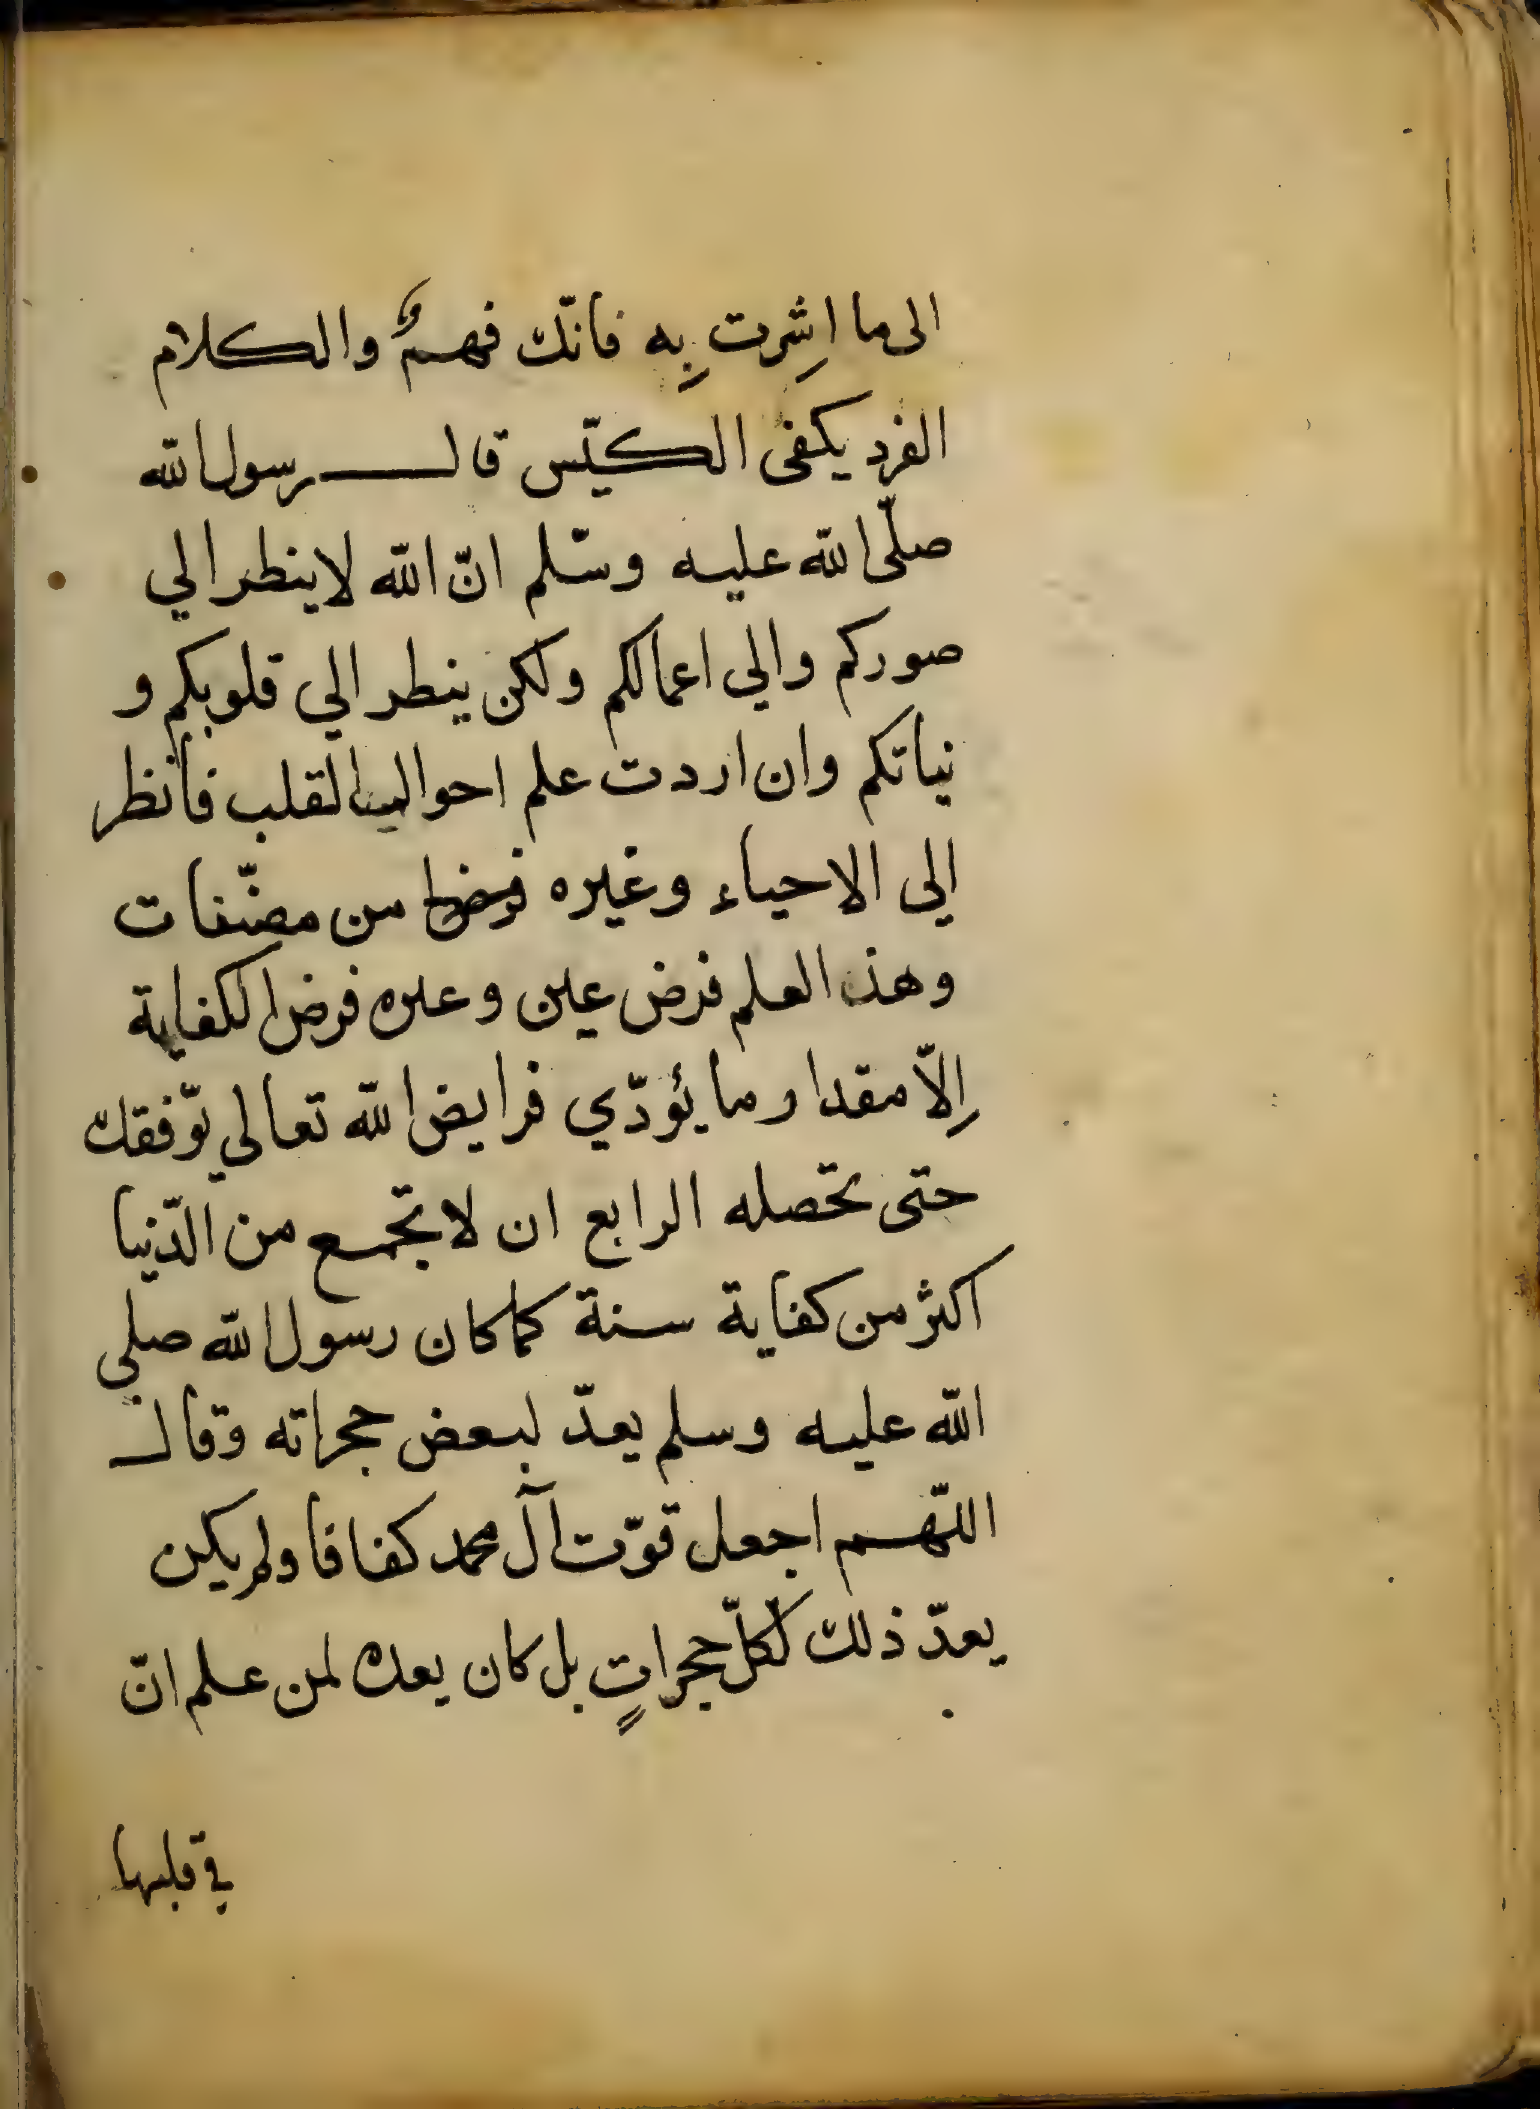 الى ما اشِرت بِه فانّك فهمٌ والكلام
الفرد يكفى الكيّس قال رسول الله
صلّى الله عليه وسّلم انّ الله لا ينطر الي
صوركم والي اعمالكم ولكن ينطر الي قلوبكم و
نياتكم وان اردت علم احوال القلب فانظر
الي الاحياء وغيره من مصنّفات
وهذا العلم فرض عين وغيره فرض الكفاية
اِلاّ مقدار ما يؤدّي فرايض الله تعالي يوّفقك
حتى تحصله الرابع ان لا تجمع من الدّنيا
اكثر من كفاية سنة كما كان رسول الله صلي
الله عليه وسلم يعدّ لبعض حجراته وقال
اللّهم اجعل قوّت آل محمد كفافا ولم يكن
يعدّ ذلك لكلّ حجراتٍ بل كان يعده لمن علم انّ
في قلبها